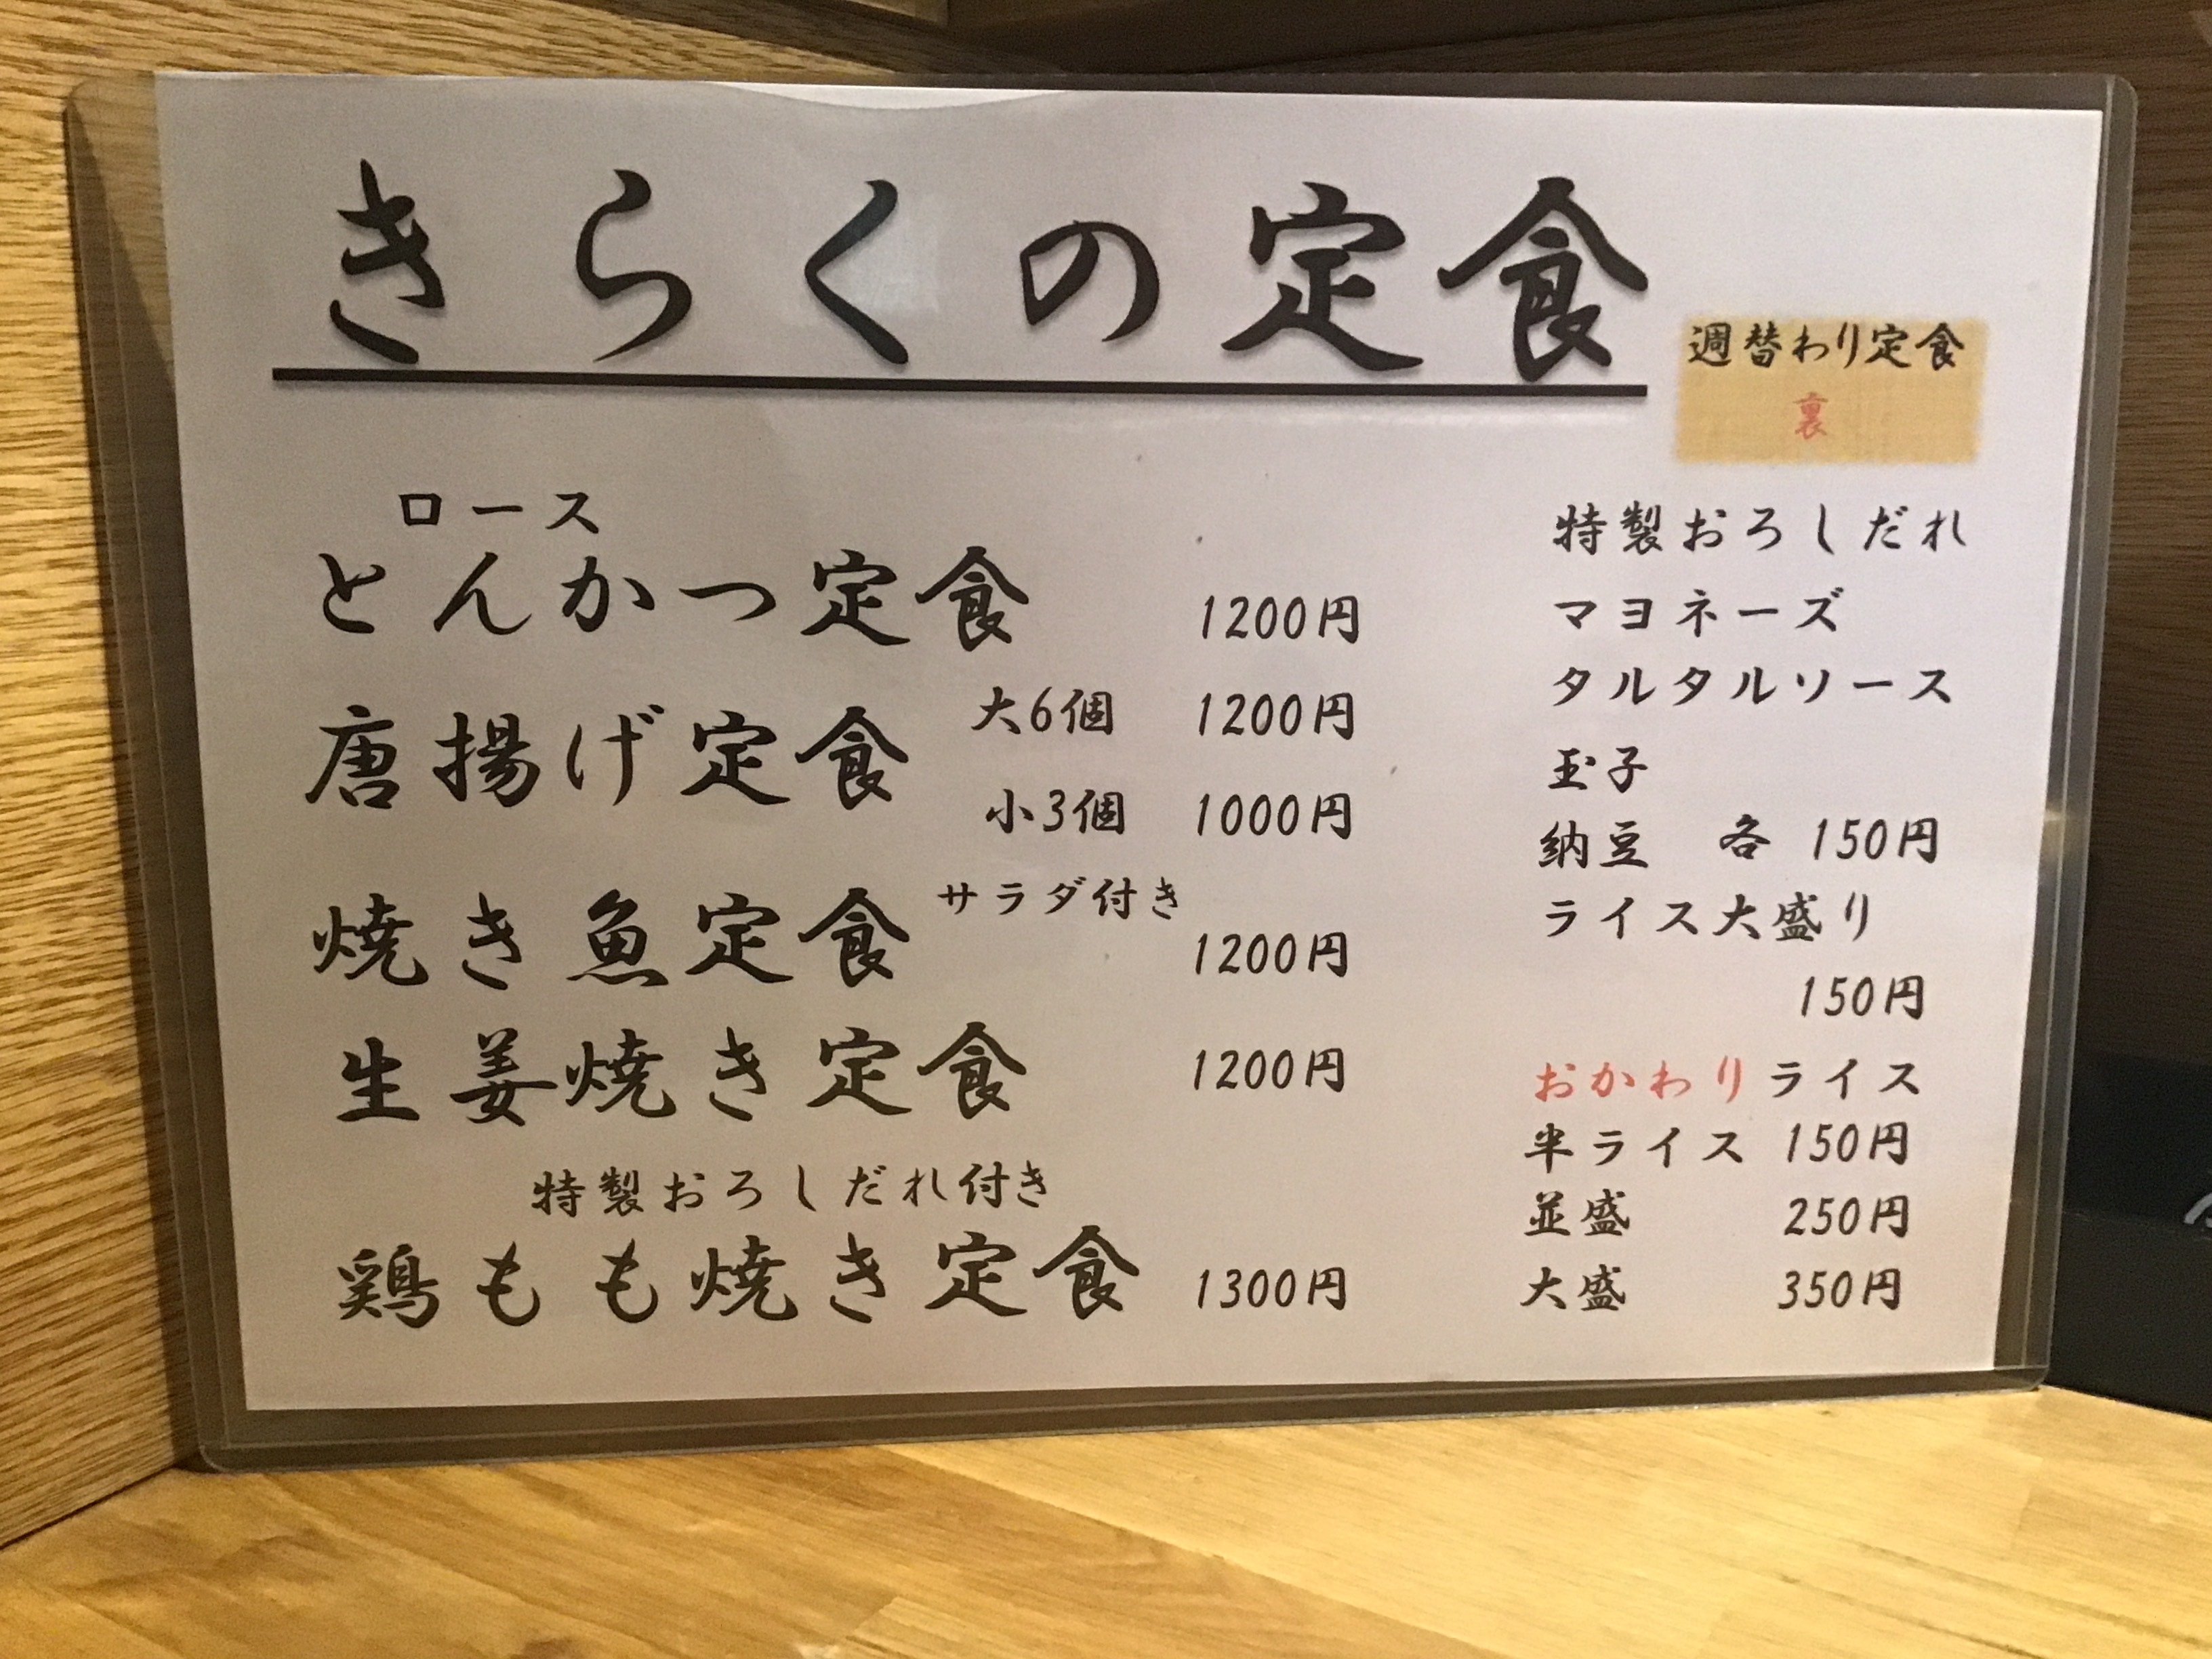 きらくの定食
週替わり定食
裏
ロース
とんかつ定食 1200円
唐揚げ定食 大6個 1200円
小3個 1000円
焼き魚定食 サラダ付き 1200円
生姜焼き定食 1200円
特製おろしだれ付き
鶏もも焼き定食 1300円
特製おろしだれ
マヨネーズ
タルタルソース
玉子
納豆 各 150円
ライス大盛り
150円
おかわりライス
半ライス 150円
並盛 250円
大盛 350円